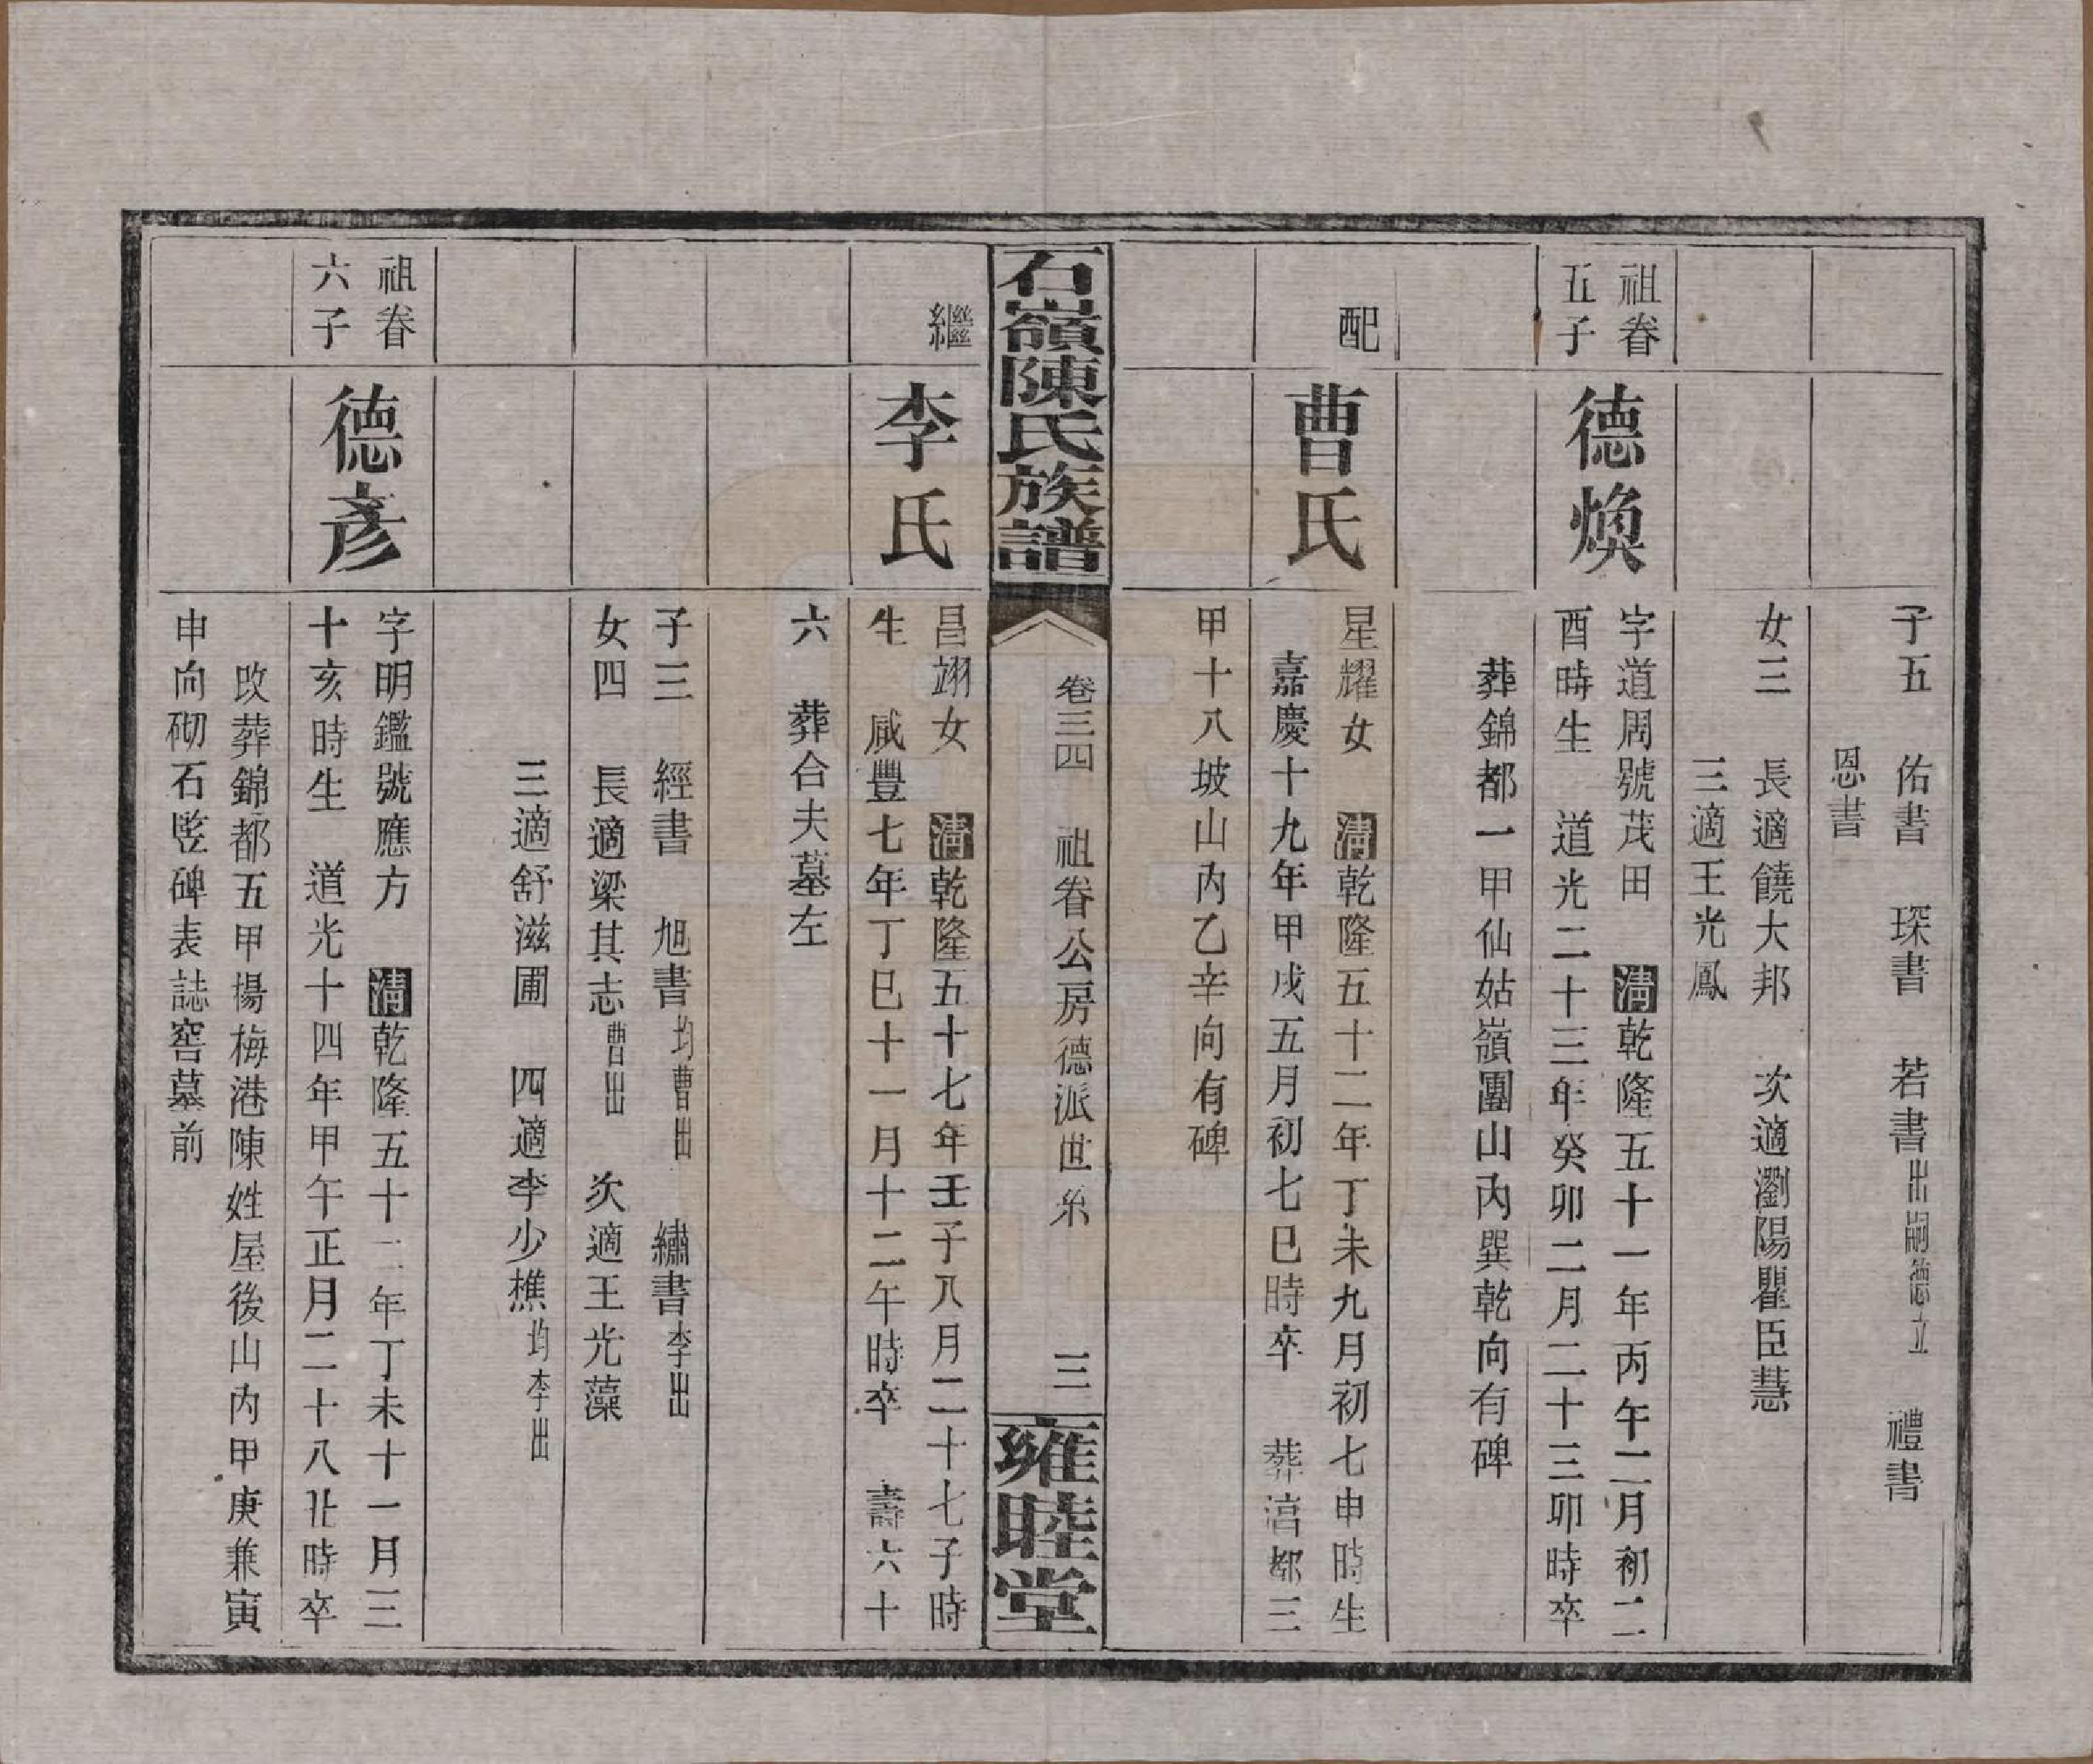 子五　佑書　琛書　若書出嗣德立　禮書
恩書
女三　長適饒大邦　次適瀏陽瞿臣慧
三適王光鳳
祖眷
五子
德煥
字道周號茂田　清乾隆五十一年丙午二月初二
酉時生　道光二十三年癸卯二月二十三卯時卒
葬錦都一甲仙姑嶺團山內巽乾向有碑
配
曹氏
星耀女　清乾隆五十二年丁未九月初七申時生
嘉慶十九年甲戌五月初七巳時卒　葬湻都三
甲十八坡山內乙辛向有碑
石嶺陳氏族譜
卷三四　祖眷公房德派世系　三
雍睦堂
繼
李氏
昌翊女　清乾隆五十七年壬子八月二十七子時
生　咸豐七年丁巳十一月十二午時卒　壽六十
六　葬合夫墓左
子三　經書　旭書均曹出　繡書李出
女四　長適梁其志曹出　次適王光藻
三適舒滋圃　四適李少樵均李出
祖眷
六子
德彥
字明鑑號應方　清乾隆五十二年丁未十一月三
十亥時生　道光十四年甲午正月二十八丑時卒
改葬錦都五甲楊梅港陳姓屋後山內甲庚兼寅
申向砌石竪碑表誌窖墓前